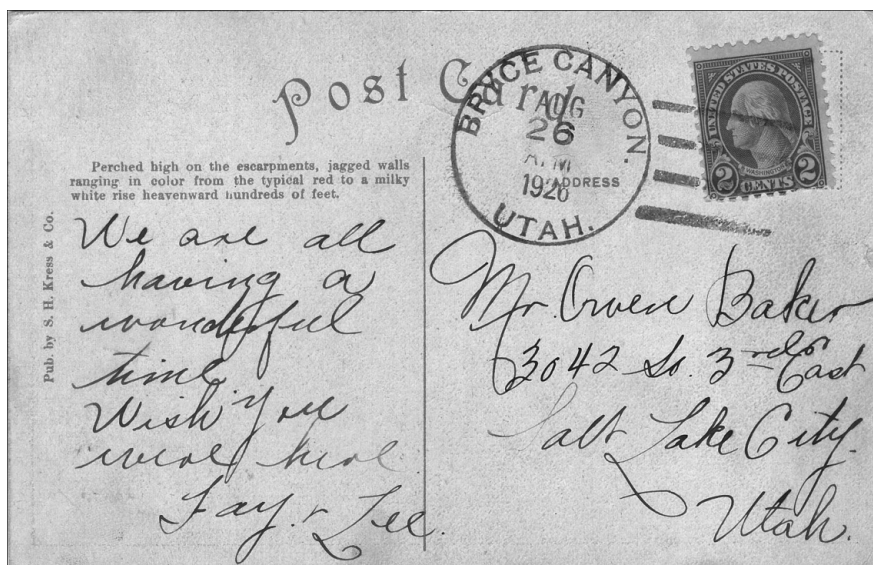 Post Card
BRYCE CANYON.
AUG
26
1926
UTAH.
UNITED STATES POSTAGE
WASHINGTON
2 CENTS 2
ADDRESS
Perched high on the escarpments, jagged walls
ranging in color from the typical red to a milky
white rise heavenward hundreds of feet.
Pub. by S. H. Kress & Co.
We are all
having a
wonderful
time
Wish you
were here
Fay. & Lee.
Mr. Owen Baker
3042 So. 3rd East
Salt Lake City.
Utah.